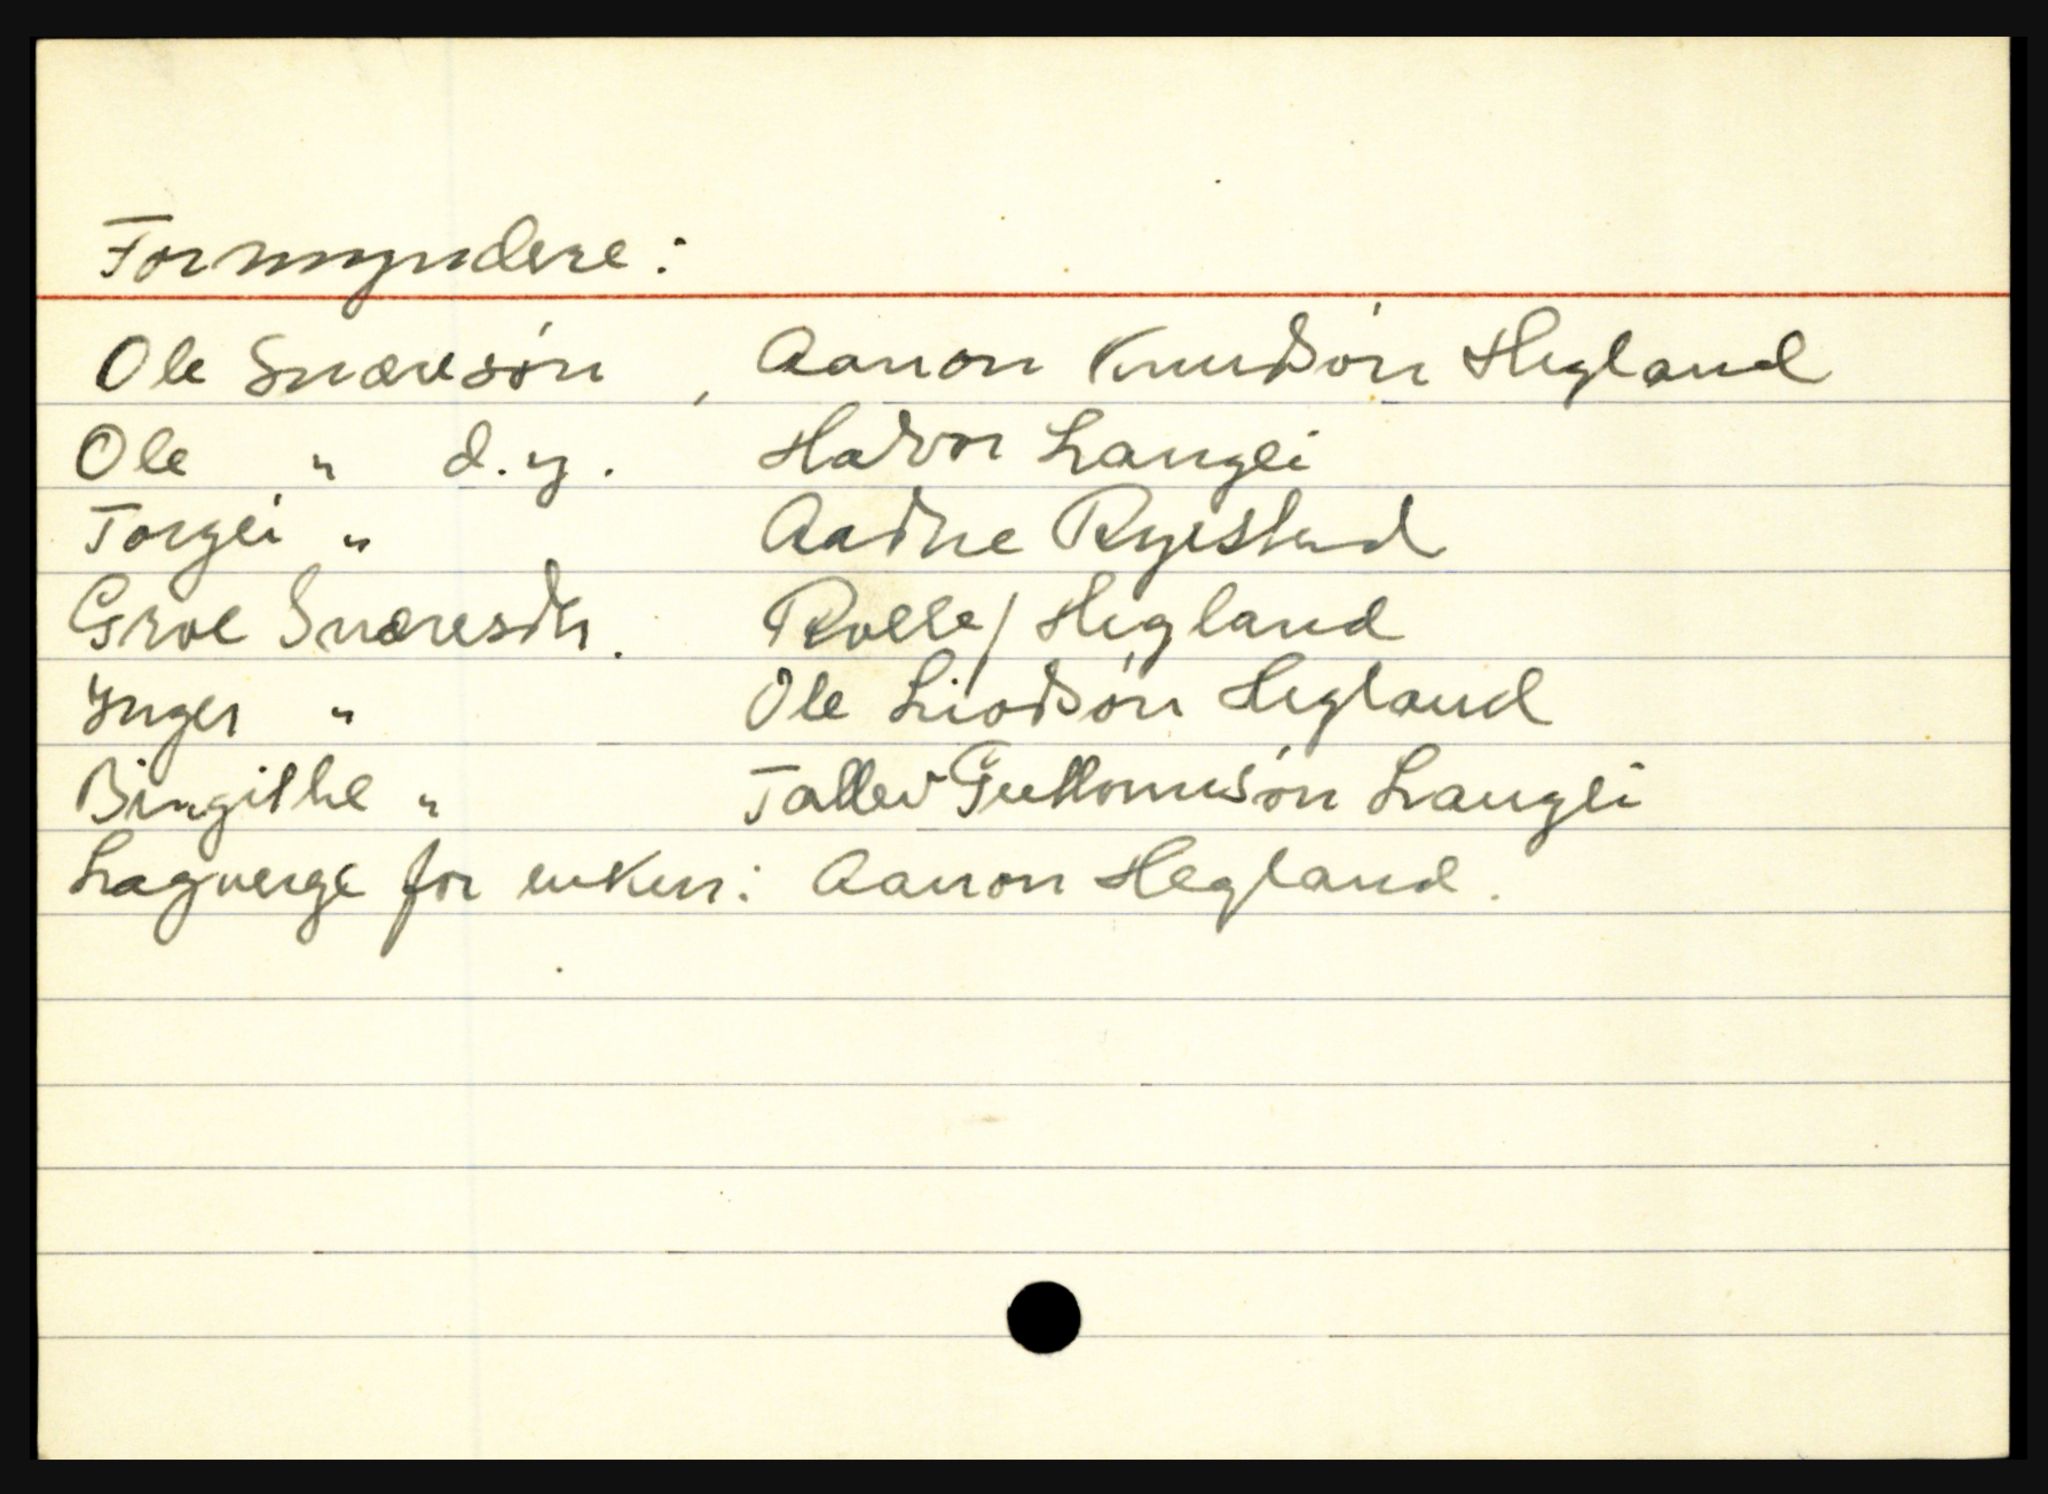 Formyndere:
Ole Snæresön, Aanon Knudsön Hegland
Ole " d.y. Halvor Langei
Torgei " Aadne Rysstad
Groe Snæresdtr. Rolle/Hegland
Inger " Ole Liodsön Hegland
Birgithe " Tallev Guttormsön Langei
Lagverge for enken: Aanon Hegland.